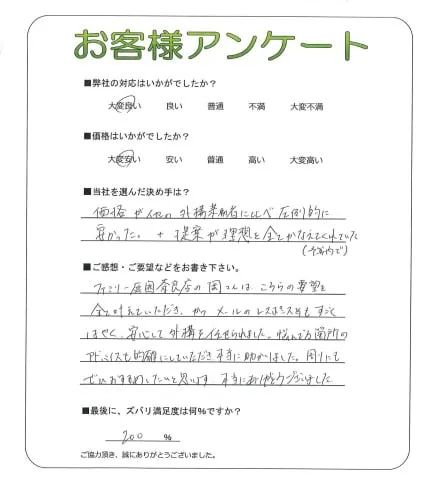 お客様アンケート
■弊社の対応はいかがでしたか？
大変良い 良い 普通 不満 大変不満
■価格はいかがでしたか？
大変安い 安い 普通 高い 大変高い
■当社を選んだ決め手は？
価格が他の外構業者に比べ圧倒的に
安かった。+ 提案が理想を全てかなえてくれていた
(予算内で)
■ご感想・ご要望などをお書き下さい。
ファミリー庭園奈良店の岡さんは、こちらの要望を
全て叶えていただき、かつメールのレスポンスもすごく
はやく、安心して外構を任せられました。悩んでる箇所の
アドバイスも的確にしていただき本当に助かりました。周りにも
ぜひおすすめしたいと思います 本当にありがとうございました
■最後に、ズバリ満足度は何%ですか？
200 %
ご協力頂き、誠にありがとうございました。